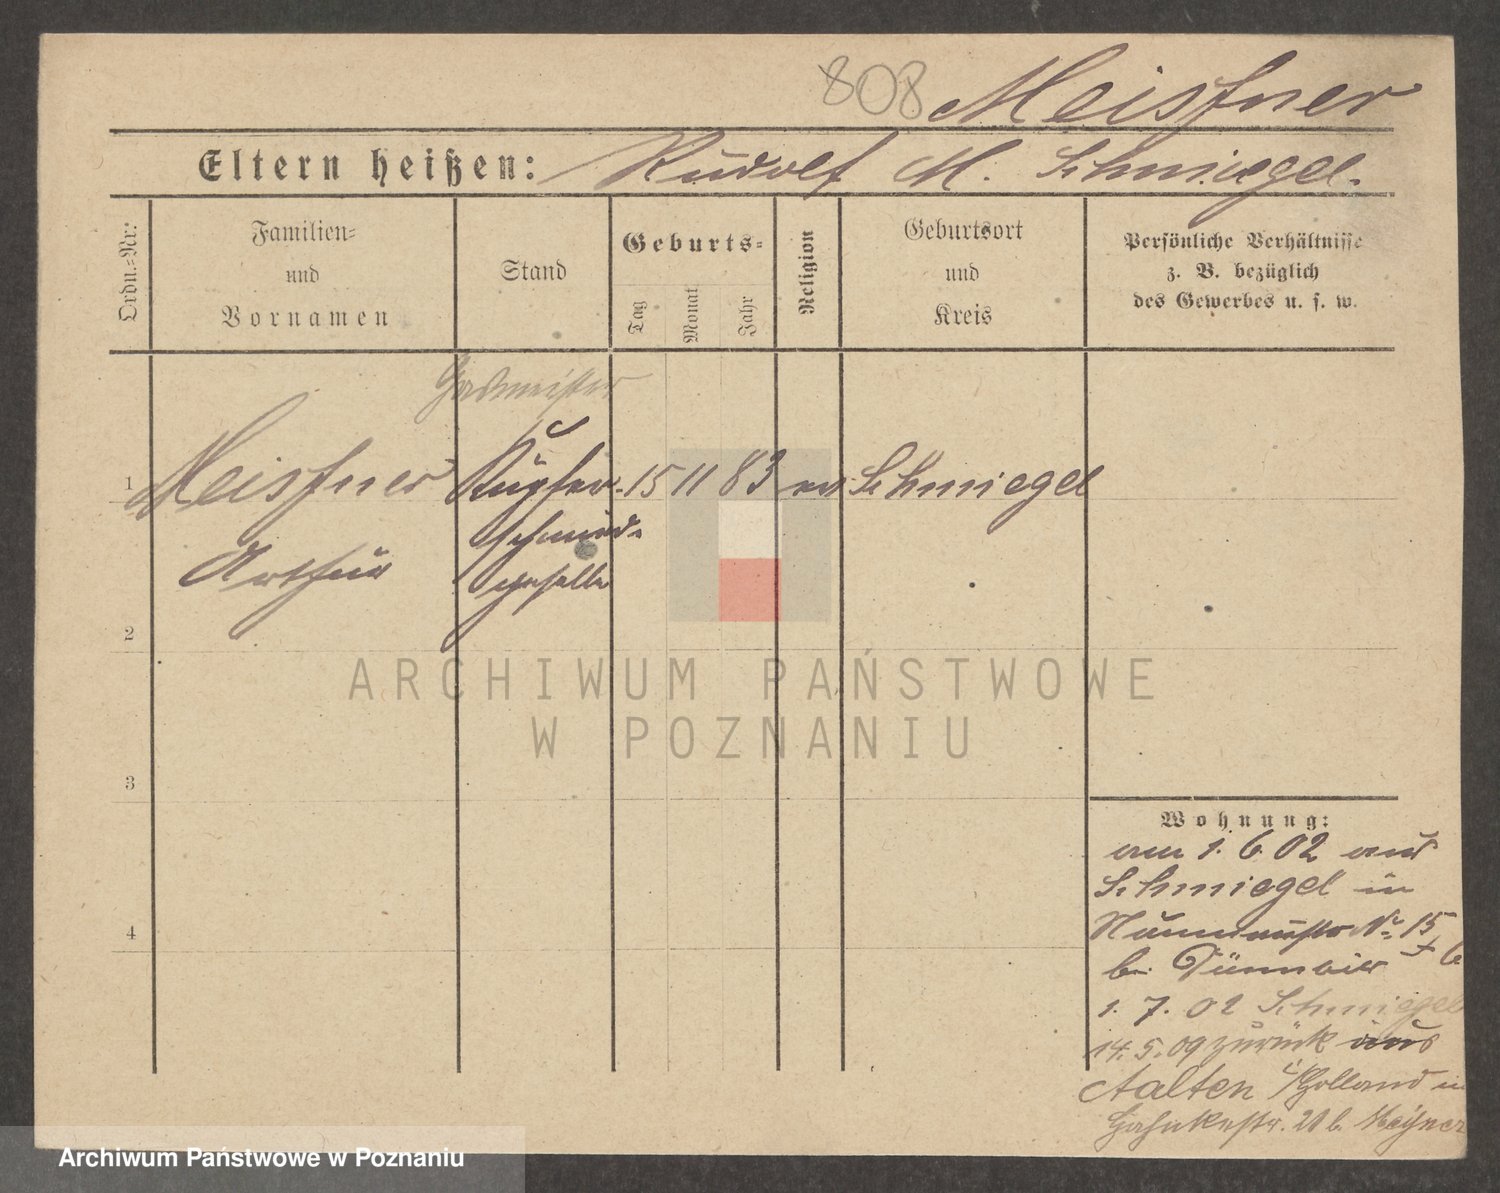 808 Meissner
Eltern heißen: Rudolf M. Schmiegel.
Ordn.-Nr:
Familien-
und
Vornamen
Stand
Geburts-
Tag
Monat
Jahr
Religion
Geburtsort
und
Kreis
Persönliche Verhältnisse
z. B. bezüglich
des Gewerbes u. s. w.
Gasmeister
1 Meissner Kupfer- 15 11 83 ev Schmiegel
schmiede
Arthur geselle
2
3
4
ARCHIWUM PAŃSTWOWE
W POZNANIU
Wohnung:
am 1. 6. 02 aus
Schmiegel in
Naumannstr No. 15
bei Dünnbier
1. 7. 02 Schmiegel
14. 5. 09 zurück aus
Aalten i/Holland in
21 b.
Archiwum Państwowe w Poznaniu